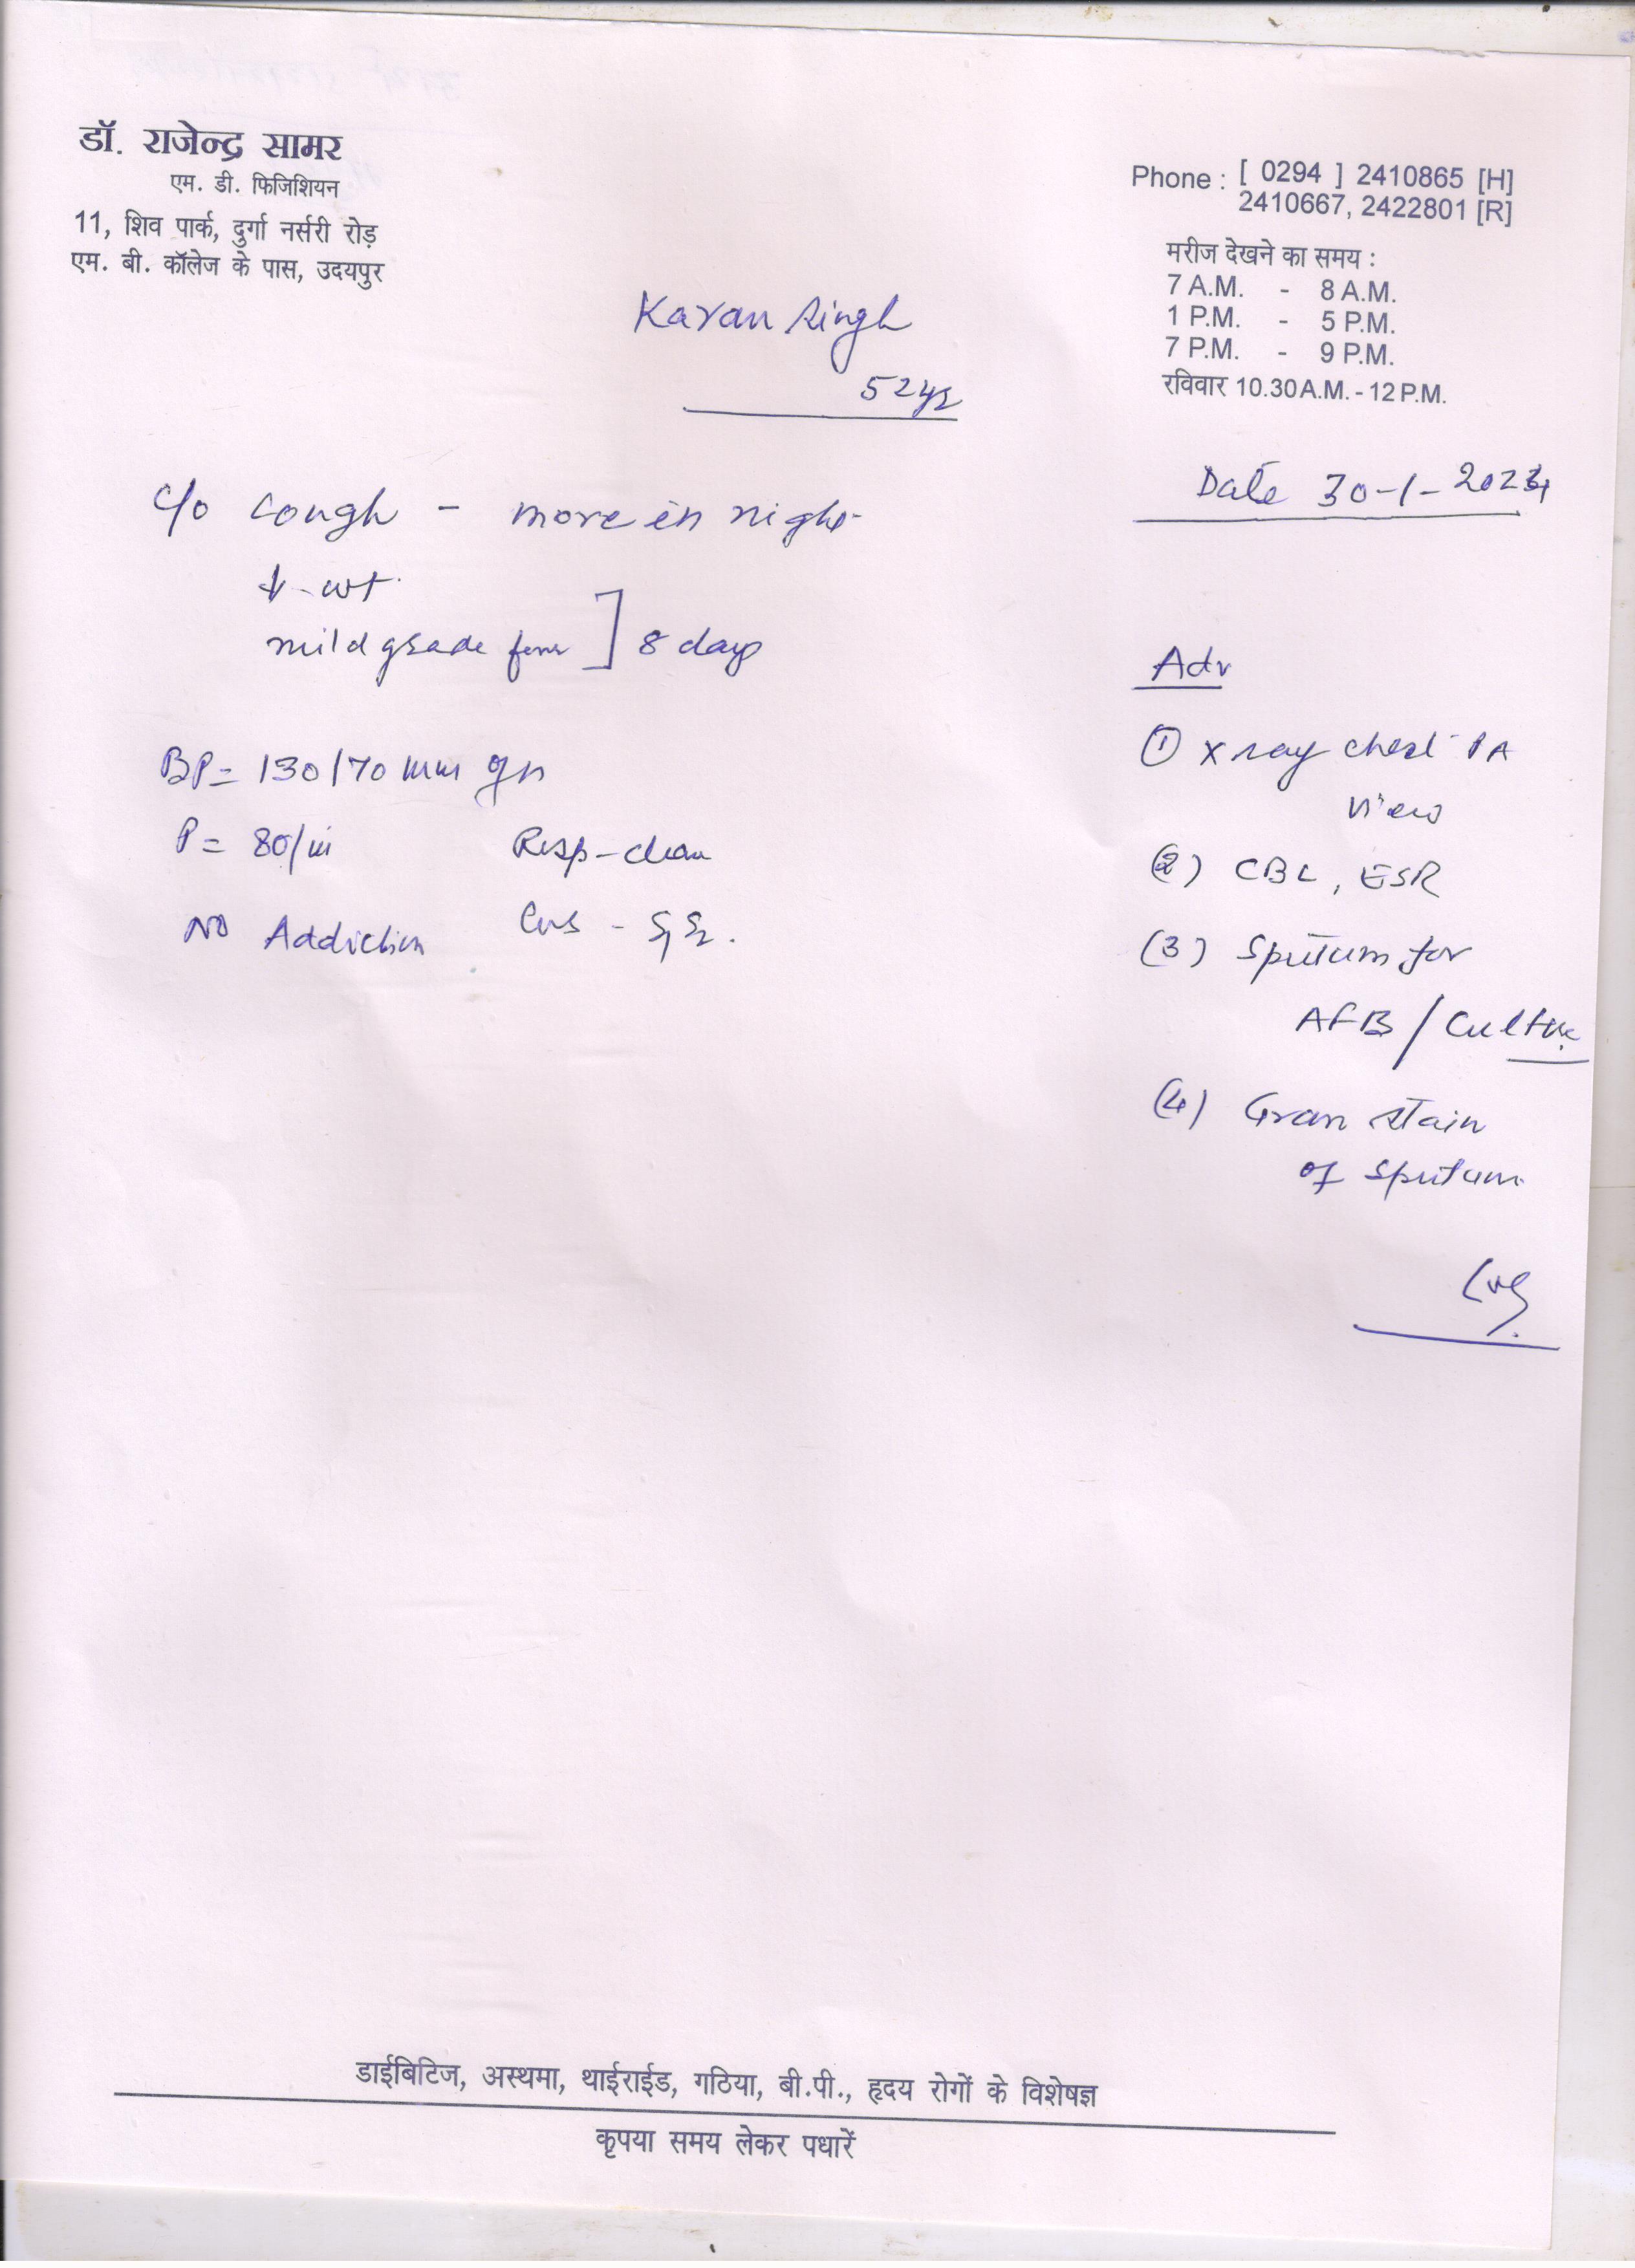 डॉ. राजेन्द्र सामर
एम. डी. फिजिशियन
11, शिव पार्क, दुर्गा नर्सरी रोड़
एम. बी. कॉलेज के पास, उदयपुर
Phone : [ 0294 ] 2410865 [H]
2410667, 2422801 [R]
मरीज देखने का समय :
7 A.M. - 8 A.M.
1 P.M. - 5 P.M.
7 P.M. - 9 P.M.
रविवार 10.30 A.M. - 12 P.M.
Karan Singh
52 yr
Date 30-1-
c/o cough - more in night
↓ wt.
mild grade fever ] 8 days
BP = 130/70 mm
P = 80/m Resp - clear
No Addiction Cvs - S1 S2.
Adv
① X ray chest PA
view
(2) CBC, ESR
(3) Sputum for
AFB / Culture
(4) Gram stain
of Sputum
डाईबिटिज, अस्थमा, थाईराईड, गठिया, बी.पी., हृदय रोगों के विशेषज्ञ
कृपया समय लेकर पधारें